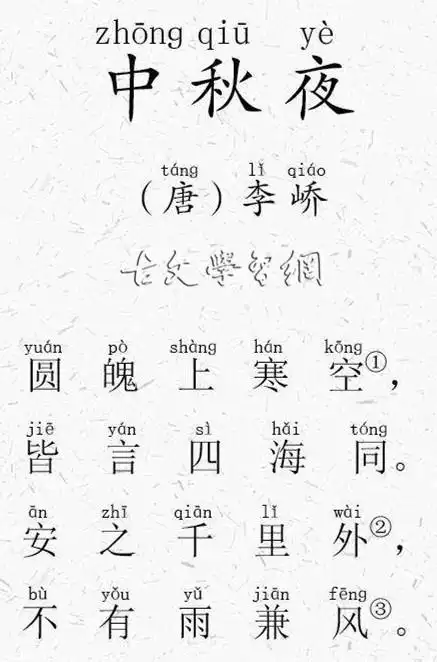 zhōng qiū yè
中秋夜
táng lǐ qiáo
（唐）李峤
古文學習網
yuán pò shàng hán kōng
圆魄上寒空①，
jiē yán sì hǎi tóng
皆言四海同。
ān zhī qiān lǐ wài
安之千里外②，
bù yǒu yǔ jiān fēng
不有雨兼风③。